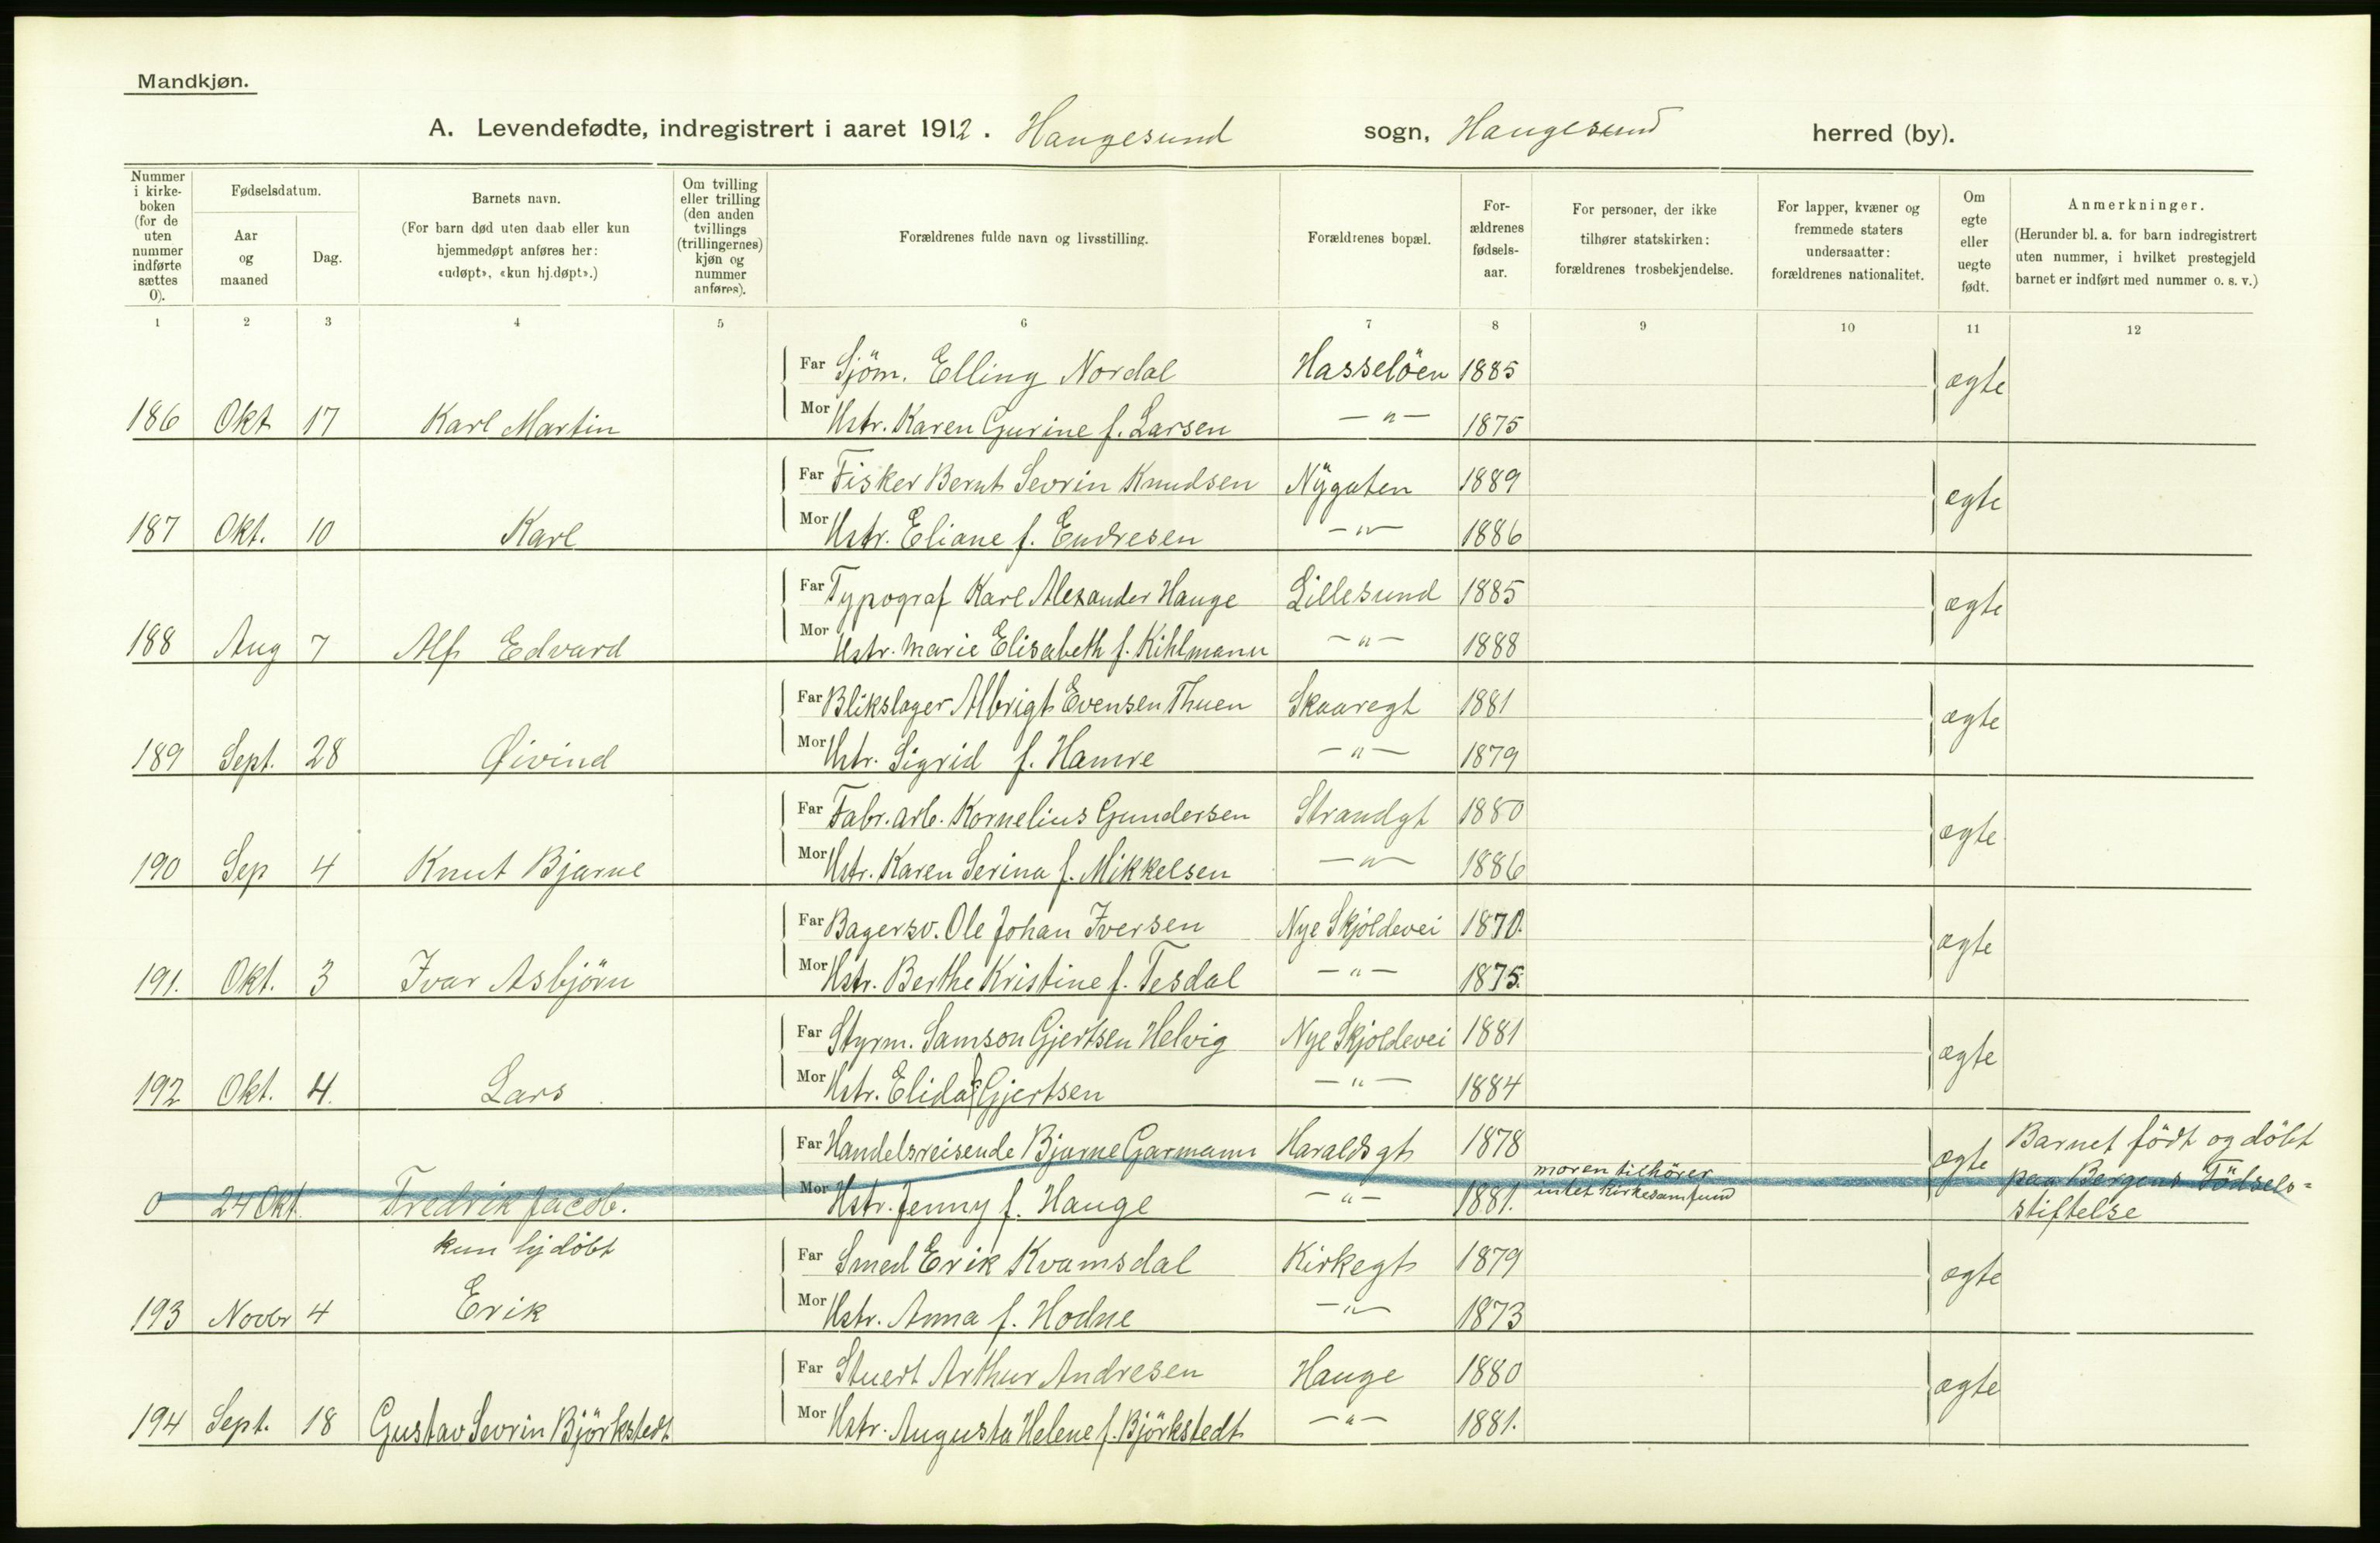 Mandkjøn.
A. Levendefødte, indregistrert i aaret 1912. Haugesund sogn, Haugesund herred (by).
Nummer i kirke- boken (for de uten nummer indførte sættes 0).
Fødselsdatum.
Aar og maaned
Dag.
Barnets navn.
(For barn død uten daab eller kun hjemmedøpt anføres her: «udøpt», «kun hj.døpt».)
Om tvilling eller trilling (den anden tvillings (trillingernes) kjøn og nummer anføres).
Forældrenes fulde navn og livsstilling.
Forældrenes bopæl.
For- ældrenes fødsels- aar.
For personer, der ikke tilhører statskirken: forældrenes trosbekjendelse.
For lapper, kvæner og fremmede staters undersaatter: forældrenes nationalitet.
Om egte eller uegte født.
Anmerkninger.
(Herunder bl. a. for barn indregistrert uten nummer, i hvilket prestegjeld barnet er indført med nummer o. s. v.)
1 2 3 4 5 6 7 8 9 10 11 12
Far Sjöm. Elling Nordal Hasselöen 1885 ægte
186 Okt 17 Karl Martin Mor Hstr. Karen Gurine f. Larsen —"— 1875
Far Fisker Bernt Sevrin Knudsen Nÿgaten 1889 ægte
187 Okt. 10 Karl Mor Hstr. Eliane f. Endresen —"— 1886
Far Typograf Karl Alexander Hauge Lillesund 1885 ægte
188 Aug 7 Alf Edvard Mor Hstr. Marie Elisabeth f. Kihlmann —"— 1888
Far Blikslager Albrigt Evensen Thuen Skaaregt 1881 ægte
189 Sept. 28 Øivind Mor Hstr. Sigrid f. Hamre —"— 1879
Far Fabr. arb. Kornelius Gundersen Strandgt 1880 ægte
190 Sep 4 Knut Bjarne Mor Hstr. Karen Serina f. Mikkelsen —"— 1886
Far Bagersv. Ole Johan Iversen Nye Skjöldevei 1870. ægte
191. Okt. 3 Ivar Asbjörn Mor Hstr. Berthe Kristine f. Tesdal —"— 1875.
Far Styrm. Samson Gjertsen Helvig Nye Skjoldevei 1881 ægte
192 Okt. 4. Lars Mor Hstr. Elida f. Gjertsen —"— 1884
Far Handelsreisende Bjarne Garmann Haraldsgt 1878 ægte Barnet födt og döbt
0 24 Okt. Fredrik Jacob. Mor Hstr. Jenny f. Hauge —"— 1881. moren tilhörer intet kirkesamfund paa Bergens Födsels= stiftelse
kun hj döbt Far Smed Erik Kvamsdal Kirkegt 1879 ægte
193 Novbr 4 Erik Mor Hstr. Anna f. Hodne —"— 1873
Far Stuert Arthur Andresen Hauge 1880 ægte
194 Sept. 18 Gustav Sevrin Björkstedt Mor Hstr. Augusta Helene f. Björkstedt —"— 1881.